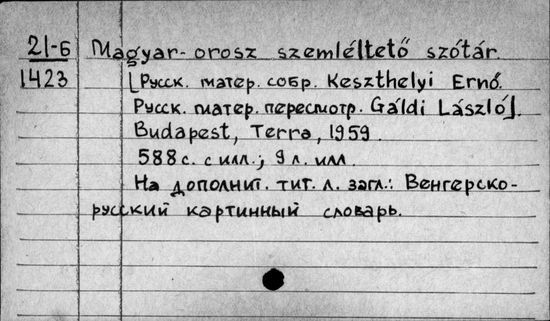 21-6 Magyar-orosz szemléltető szótár.
1423 [Русск. матер. собр. Keszthelyi Ernő.
Русск. матер. пересмотр. Gáldi László].
Budapest, Terra, 1959.
588 с. с илл.; 9 л. илл.
На дополнит. тит. л. загл.: Венгерско-
русский картинный словарь.